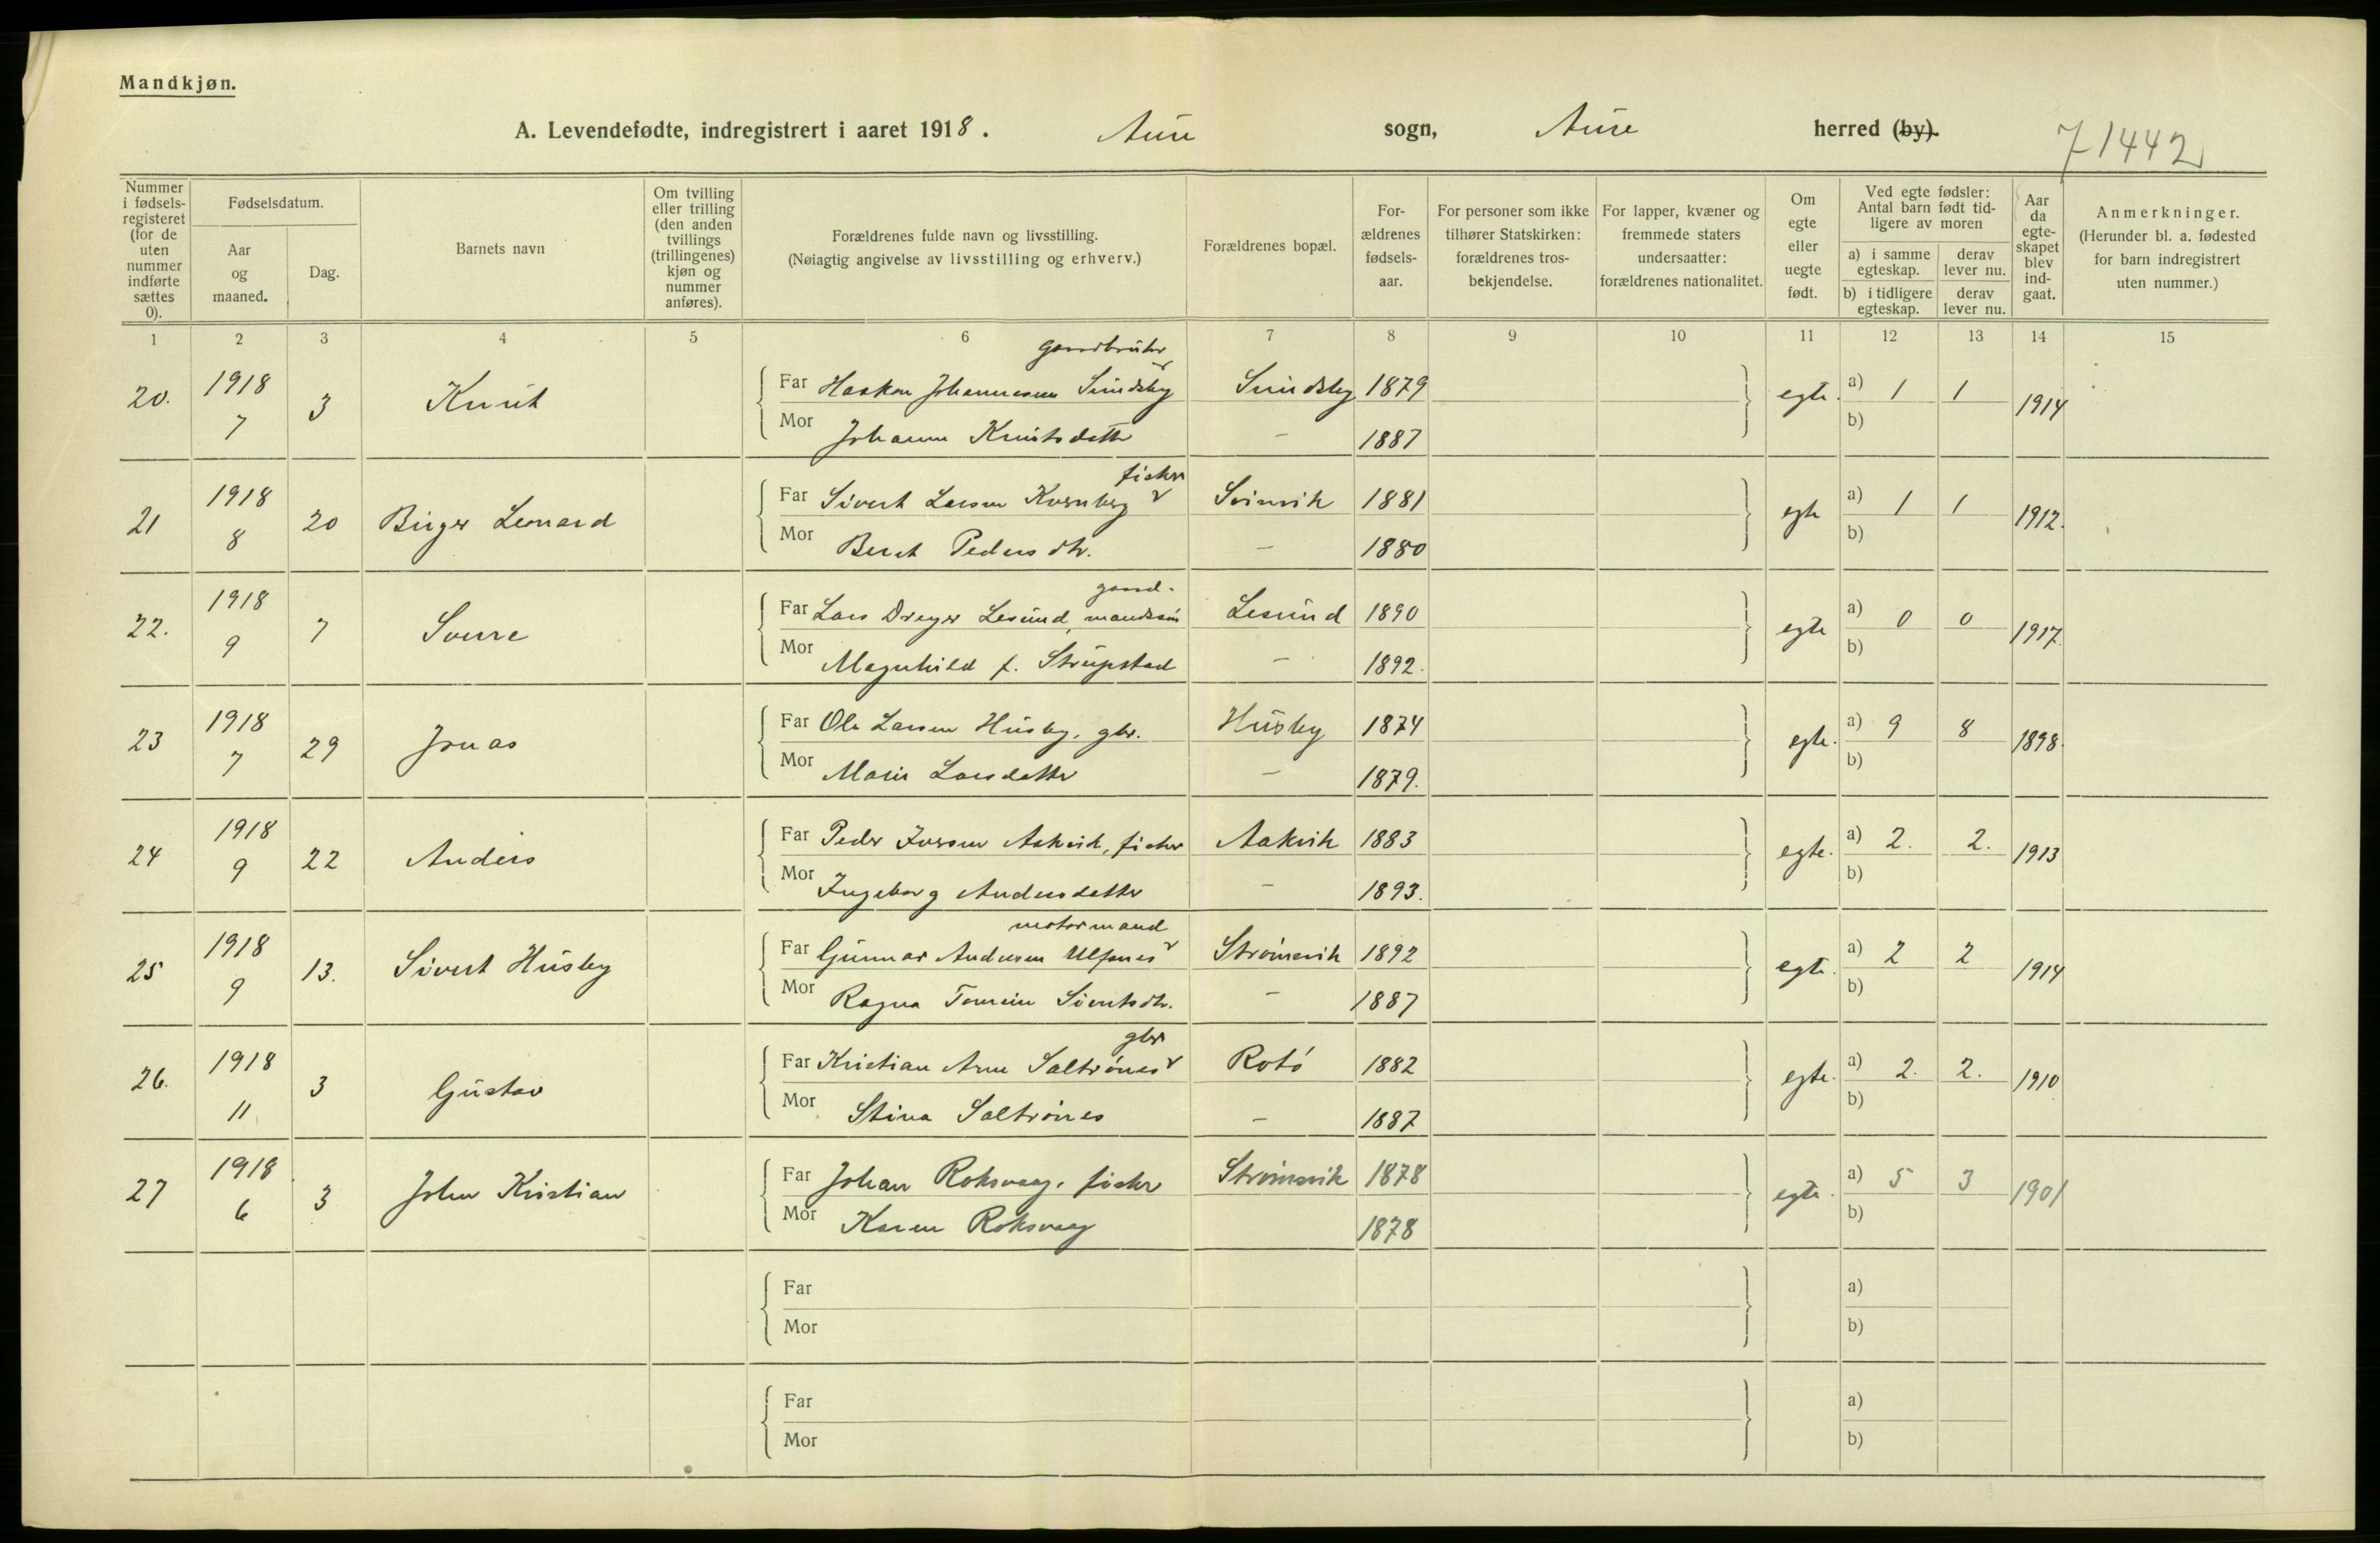 Mandkjøn.
A. Levendefødte, indregistrert i aaret 1918. Aure sogn, Aure herred (by).
71442
Nummer i fødsels-registeret (for de uten nummer indførte sættes 0).
Fødselsdatum.
Aar og maaned.
Dag.
Barnets navn
Om tvilling eller trilling (den anden tvillings (trillingenes) kjøn og nummer anføres).
Forældrenes fulde navn og livsstilling.
(Nøiagtig angivelse av livsstilling og erhverv.)
Forældrenes bopæl.
For-ældrenes fødsels-aar.
For personer som ikke tilhører Statskirken: forældrenes tros-bekjendelse.
For lapper, kvæner og fremmede staters undersaatter: forældrenes nationalitet.
Om egte eller uegte født.
Ved egte fødsler: Antal barn født tid-ligere av moren
a) i samme egteskap. derav lever nu.
b) i tidligere egteskap. derav lever nu.
Aar da egte-skapet blev ind-gaat.
Anmerkninger.
(Herunder bl. a. fødested for barn indregistrert uten nummer.)
1 2 3 4 5 6 7 8 9 10 11 12 13 14 15
gaardbruker
20. 1918 7 3 Knut Far Haakon Johannesen Sundsby Sundsby 1879 egte. a) 1 1 1914
Mor Johanna Knutsdatter – 1887 b)
fisker
21 1918 8 20 Birger Leonard Far Sivert Larsen Kvernberg Svinvik 1881 egte a) 1 1 1912.
Mor Berit Pedersdtr. – 1880 b)
gaard-
22. 1918 9 7 Sverre Far Lars Dreyer Lesund, mandssøn Lesund 1890 egte a) 0 0 1917.
Mor Magnhild f. Strupstad – 1892. b)
23 1918 7 29 Jonas Far Ole Larsen Husby, gbr. Husby 1874 egte. a) 9 8 1898.
Mor Marie Larsdatter – 1879. b)
24 1918 9 22 Anders Far Peder Iversen Aakvik, fisker Aakvik 1883 egte. a) 2. 2. 1913
Mor Ingeborg Andersdatter – 1893. b)
motormand
25 1918 9 13. Sivert Husby Far Gunnar Andersen Ulfsnes Strømsvik 1892 egte. a) 2 2 1914
Mor Ragna Sivertsdtr. – 1887 b)
gbr
26. 1918 11 3 Gustav Far Kristian Arne Saltrønes Rotó 1882 egte. a) 2. 2. 1910
Mor Stina Saltrønes – 1887 b)
27 1918 6 3 John Kristian Far Johan Roksvaag, fisker Strømsvik 1878 egte. a) 5 3 1901
Mor Karen Roksvaag 1878 b)
Far a)
Mor b)
Far a)
Mor b)